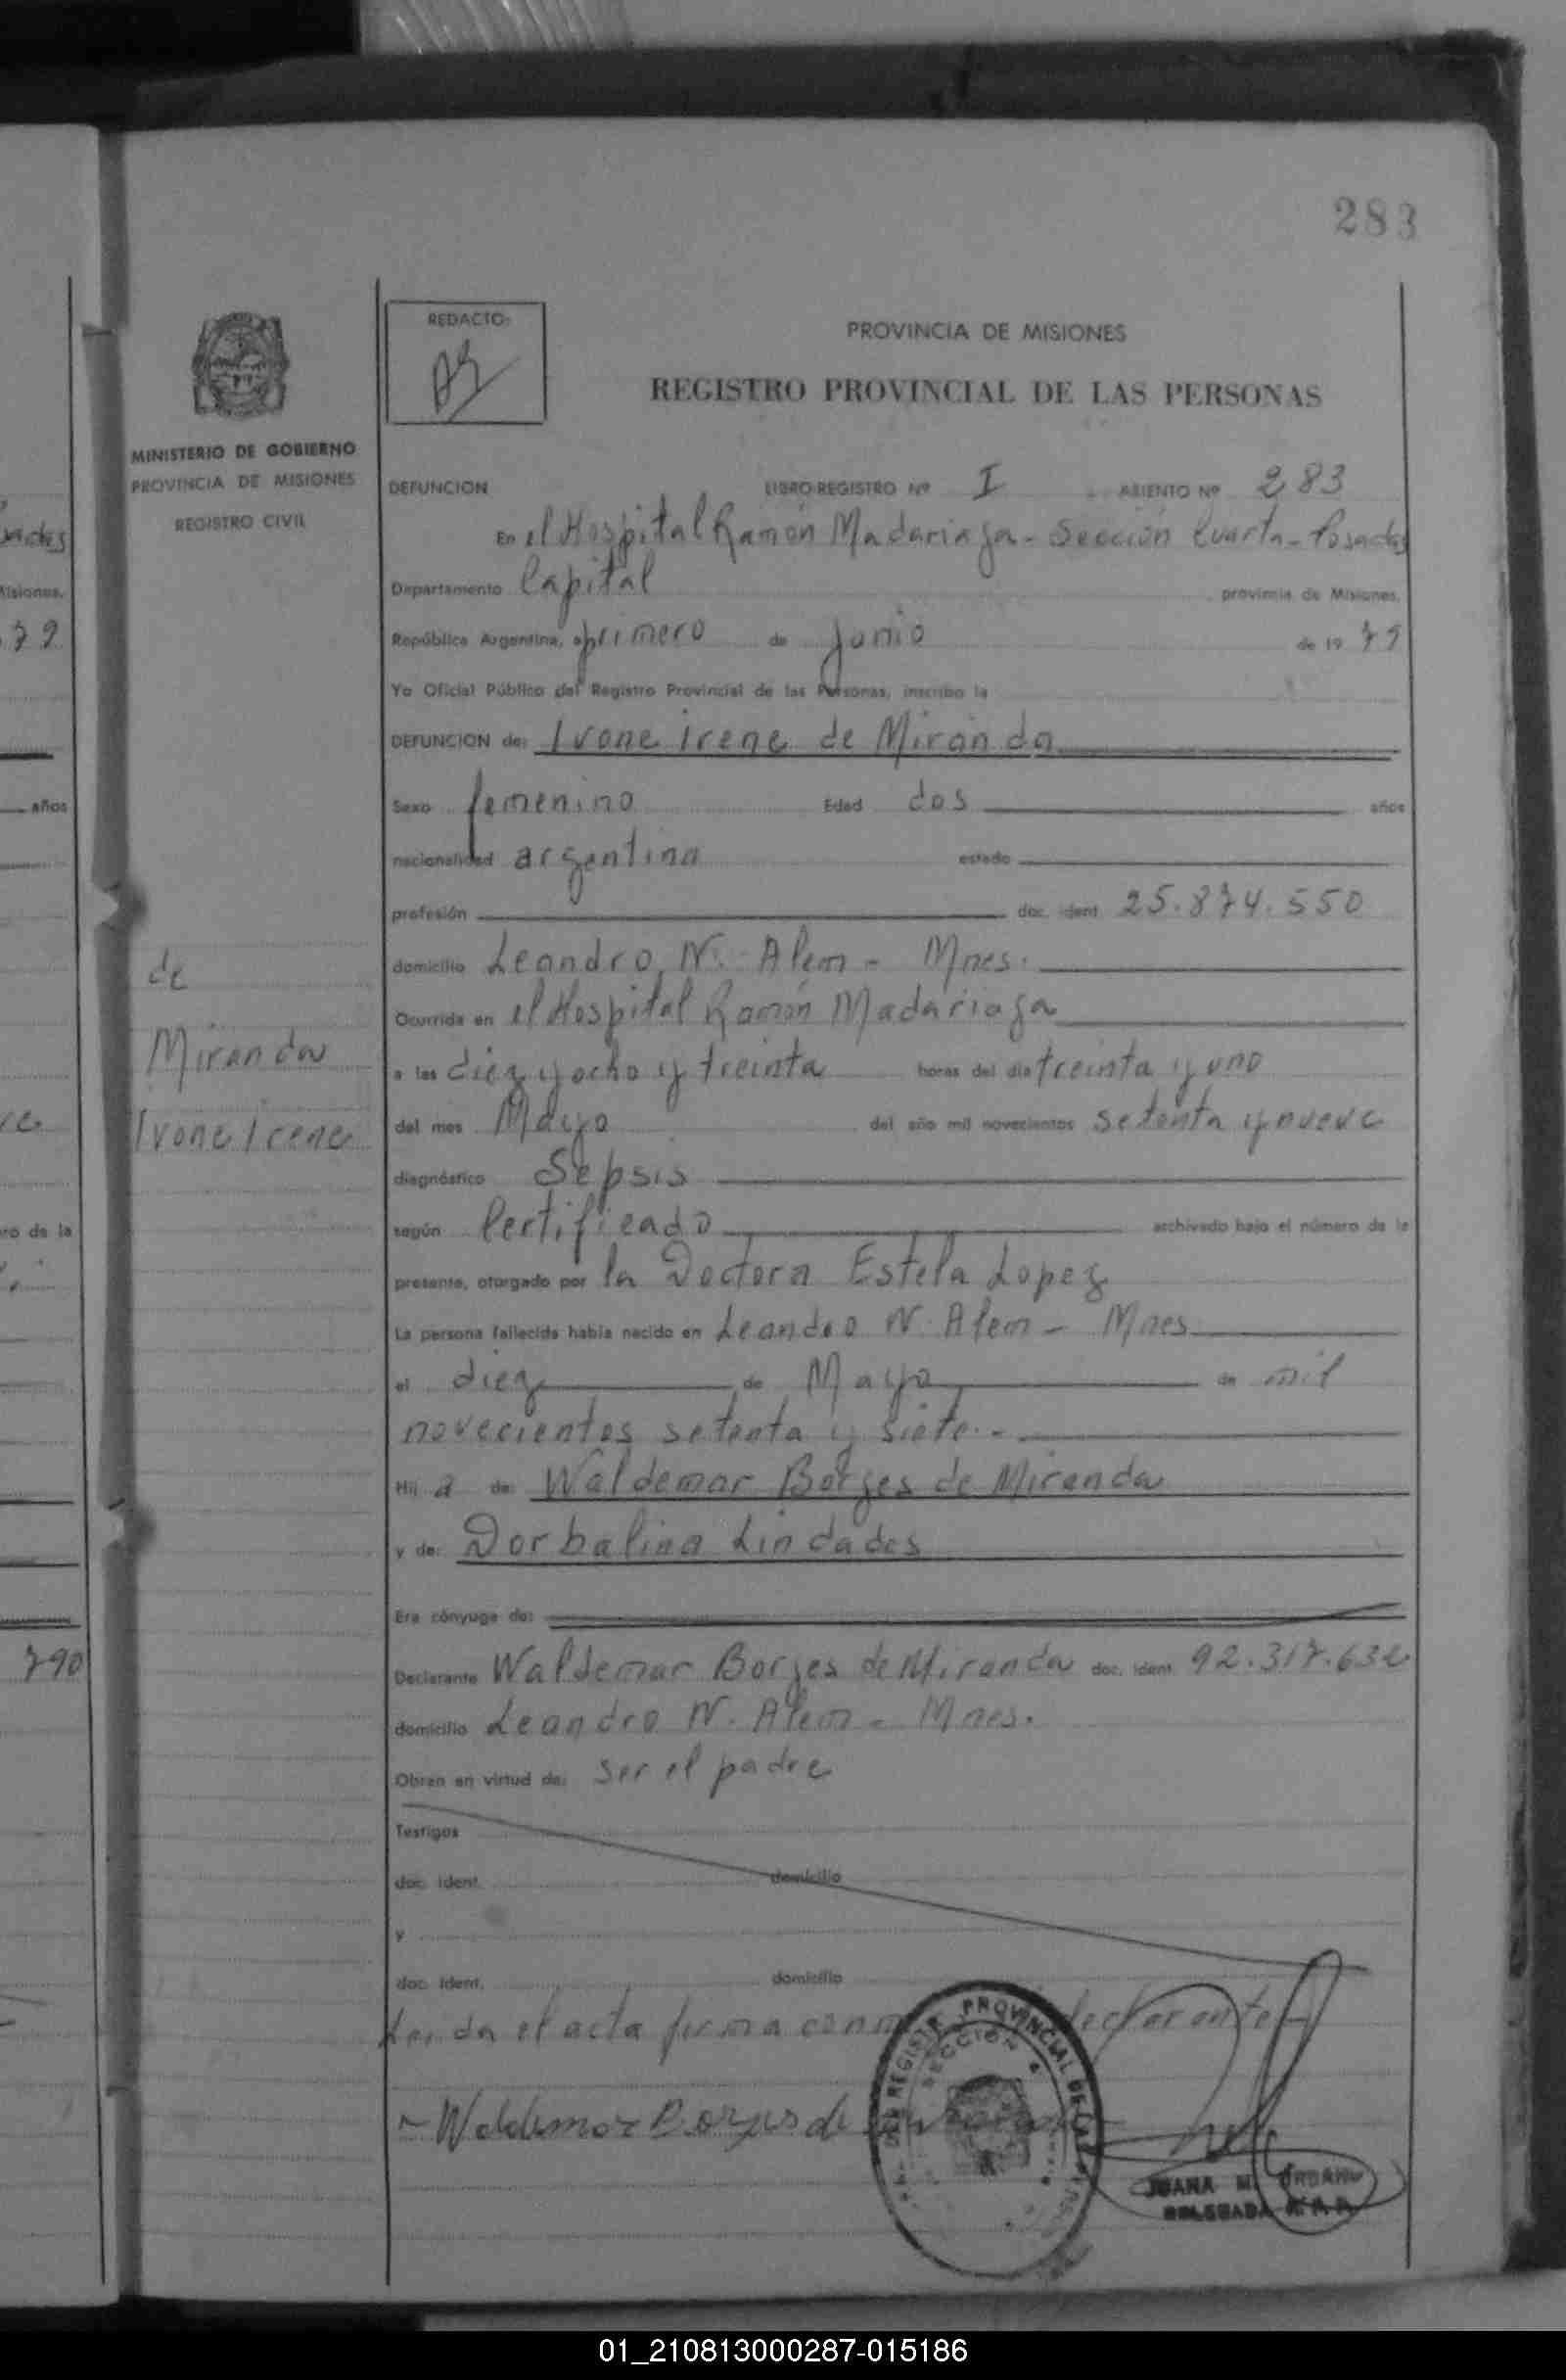 283
REDACTO:
PROVINCIA DE MISIONES
REGISTRO PROVINCIAL DE LAS PERSONAS
MINISTERIO DE GOBIERNO
PROVINCIA DE MISIONES
REGISTRO CIVIL
DEFUNCION LIBRO REGISTRO Nº I ASIENTO Nº 283
En el Hospital Ramón Madariaga - Sección Cuarta - Posadas
Departamento Capital provincia de Misiones,
República Argentina, a primero de Junio de 19 79
Yo Oficial Público del Registro Provincial de las Personas, inscribo la
DEFUNCION de: Ivone Irene de Miranda
Sexo femenino Edad dos años
nacionalidad argentina estado
profesión doc. ident. 25.874.550
domicilio Leandro N. Alem - Mnes.
Ocurrida en el Hospital Ramón Madariaga
a las diez y ocho y treinta horas del día treinta y uno
del mes Mayo del año mil novecientos setenta y nueve
diagnóstico Sepsis
según Certificado archivado bajo el número de la
presente, otorgado por la Doctora Estela Lopez
La persona fallecida había nacido en Leandro N. Alem - Mnes
el diez de Mayo de mil
novecientos setenta y siete.-
Hij a de: Waldemar Borges de Miranda
y de: Dorbalina Lindades
Era cónyuge de:
Declarante Waldemar Borges de Miranda doc. ident. 92.317.632
domicilio Leandro N. Alem - Mnes.
Obran en virtud de: ser el padre
Testigos
doc. ident. domicilio
y
doc. ident. domicilio
Leida el acta firma declarante -
Waldemar Borges de
de
Miranda
Ivone Irene
REGISTR PROVINCIAL DE
SECCION 4
JUANA M. URBANO
DELEGADA
uadas
Misiones.
79
años
ro de la
790
01_210813000287-015186